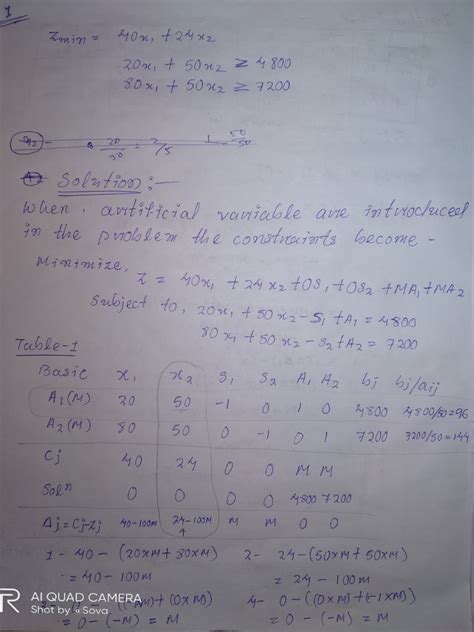 1
Zmin = 40x₁ + 24x₂
20x₁ + 50x₂ ≥ 4800
80x₁ + 50x₂ ≥ 7200
20/50 = 2/5 1 50/50
Solution :—
When, artificial variable are introduced
in the problem the constraints become -
Minimize,
Z = 40x₁ + 24x₂ + 0S₁ + 0S₂ + MA₁ + MA₂
Subject to, 20x₁ + 50x₂ - S₁ + A₁ = 4800
80x₁ + 50x₂ - S₂ + A₂ = 7200
Table-1
Basic x₁ x₂ S₁ S₂ A₁ A₂ bj bj/aij
A₁(M) 20 50 -1 0 1 0 4800 4800/50=96
A₂(M) 80 50 0 -1 0 1 7200 7200/50=144
Cj 40 24 0 0 M M
Solⁿ 0 0 0 0 4800 7200
Δj = Cj-Zj 40-100M 24-100M M M 0 0
1- 40 - (20×M + 80×M) 2- 24 - (50×M + 50×M)
= 40 - 100M = 24 - 100M
4- 0 - (0×M) + (-1×M)
= 0 - (-M) = M = 0 - (-M) = M
AI QUAD CAMERA
Shot by Sova